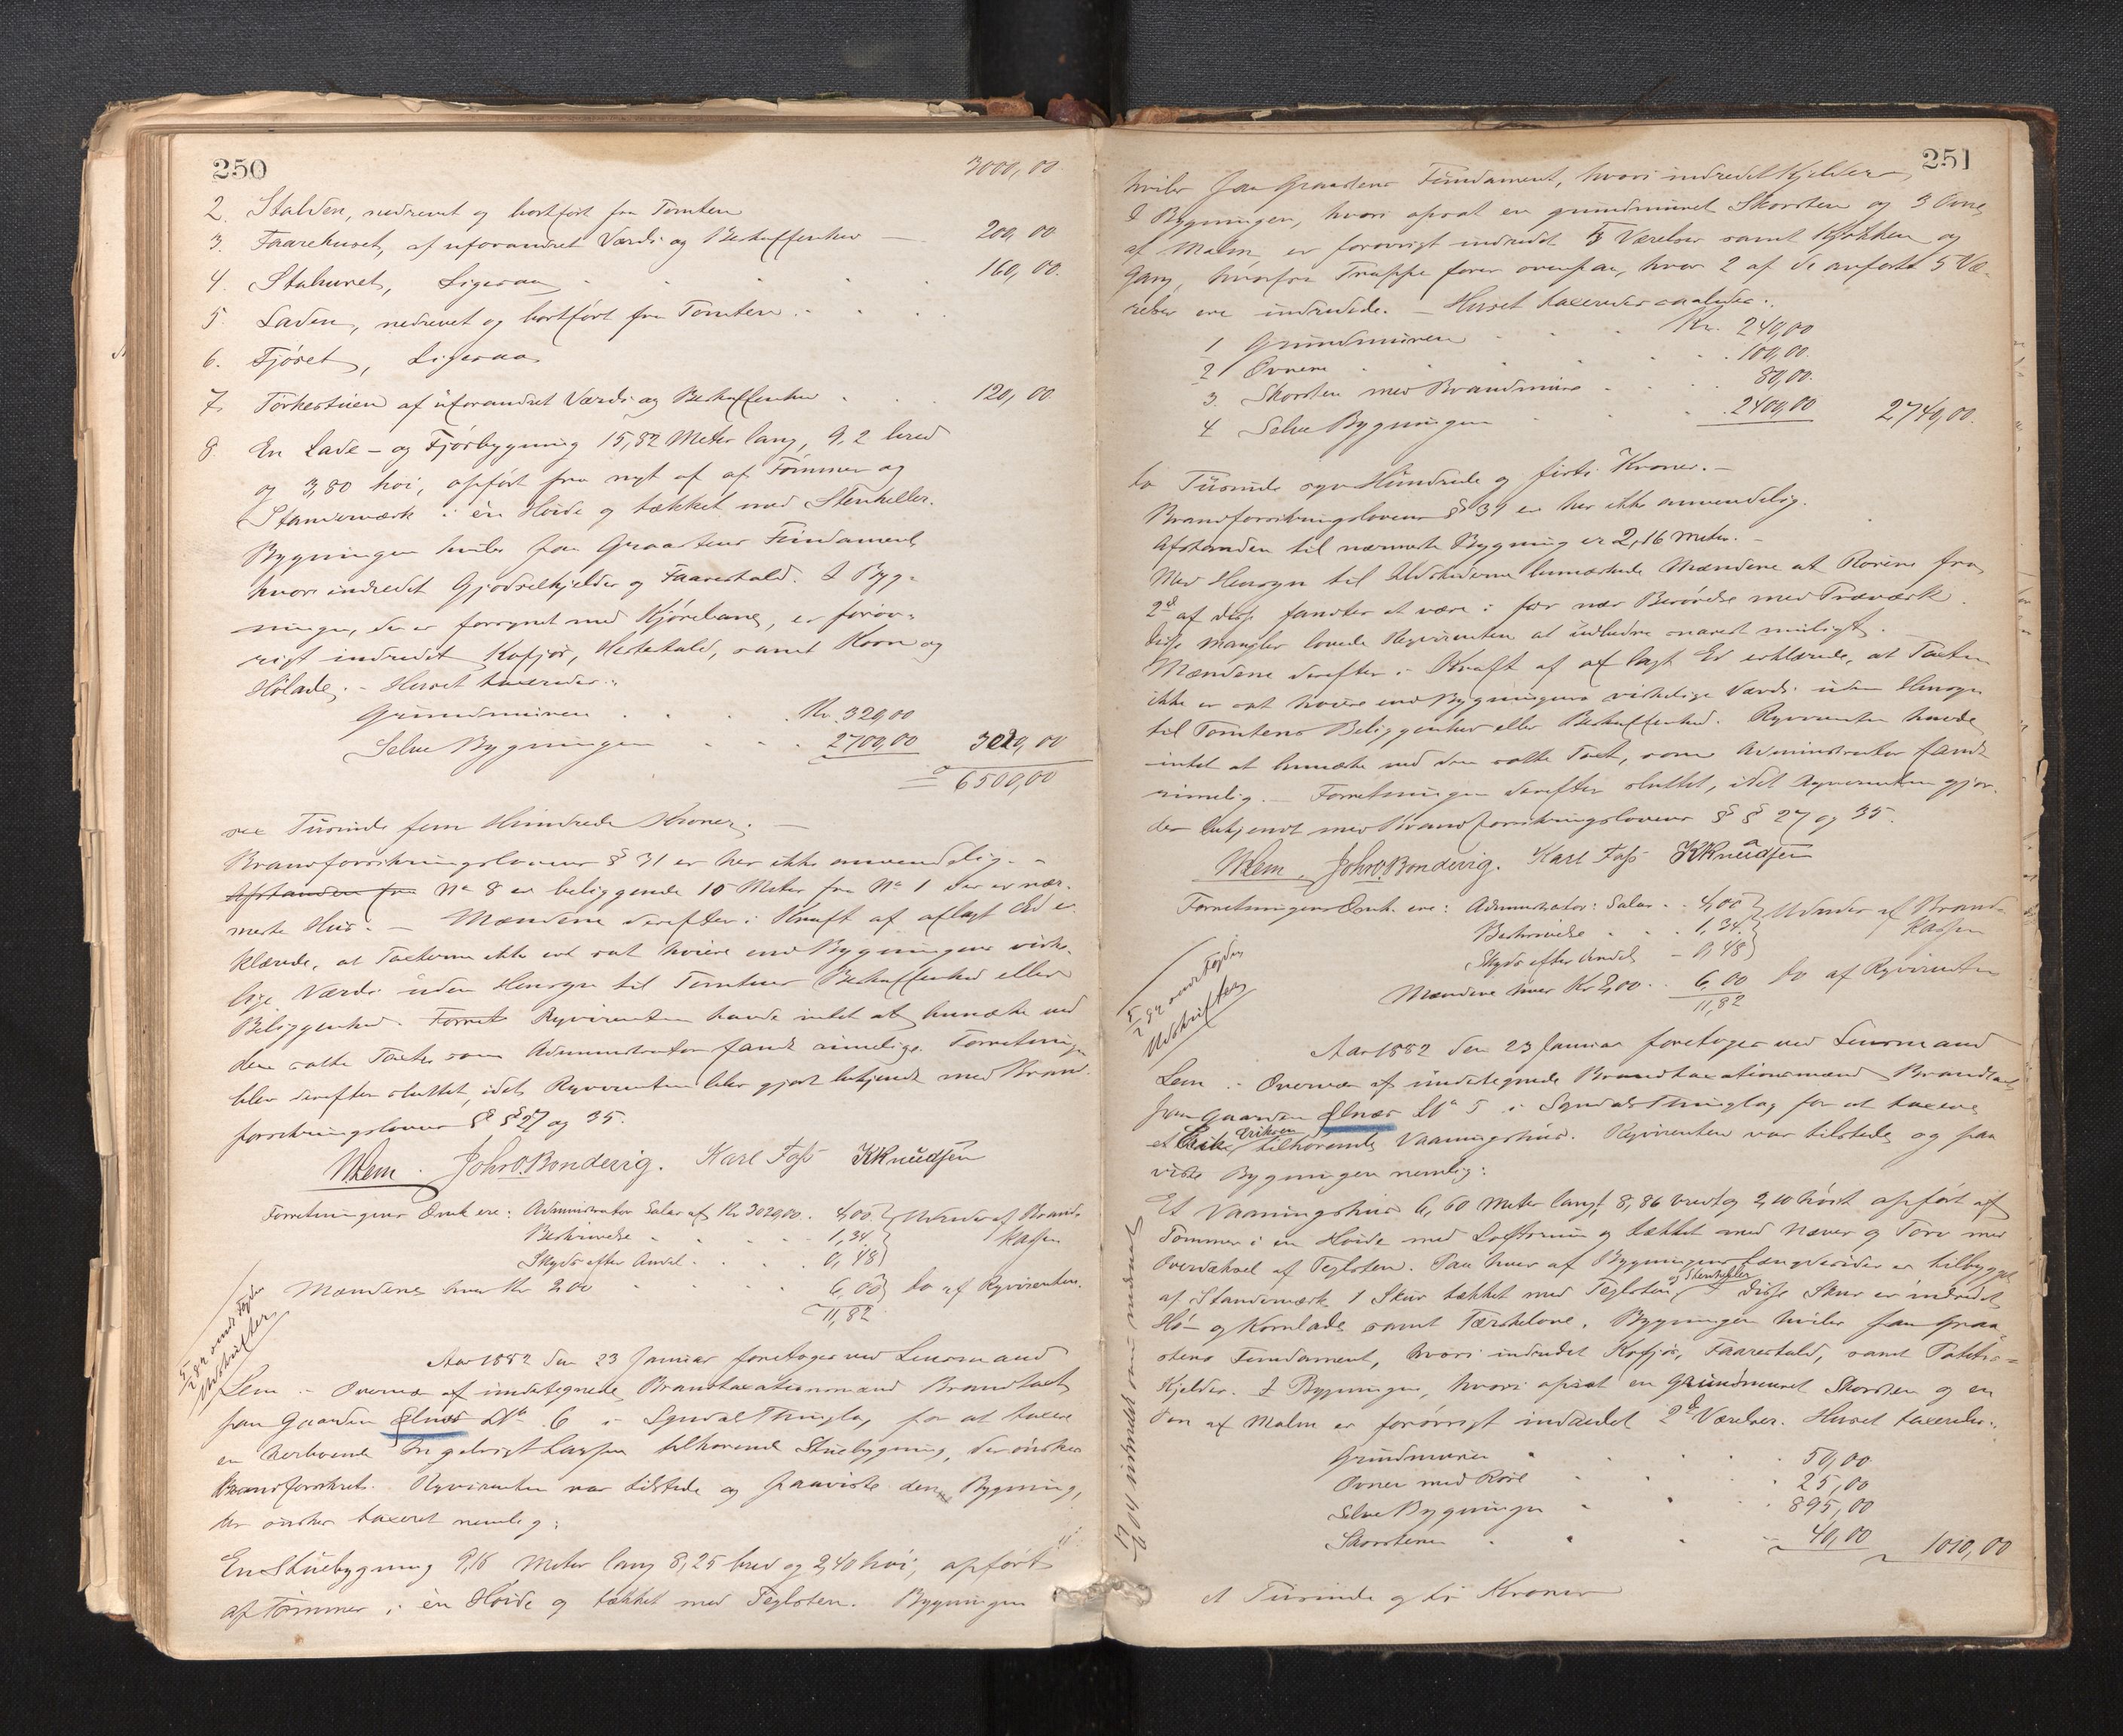 250
3000,00
2. Stalden, nedrevet og bortført fra Tomten
3. Faarehuset, af uforandret Værdi og Beskaffenhed — 200,00
4. Staburet, Ligesaa . . . 160,00.
5 Laden, nedrevet og bortført fra Tomten . . .
6. Fjøset, Ligesaa
7. Tørkestuen af uforandret Værdi og Beskaffenhed . . 120,00
8. En Lade- og Fjøsbygning 15,82 Meter lang, 9,2 bred
og 3,80 høi, opført fra nyt af af Tømmer og
Standerværk i èn Høide og tækket med Stenheller.
Bygningen hviler paa Graastens Fundament,
hvori indredet Gjødselkjelder og Faarestald. I Byg-
ningen, der er forsynet med Kjørebane, er forøv-
rigt indredet Kofjøs, Hestestald, samt Korn og
Hølade. - Huset taxeredes:
Grundmuren . . . Kr. 320,00
Selve Bygningen . . . 2700,00 3020,00
6500,00
sex Tusinde fem Hundrede Kroner. —
Brandforsikringslovens § 31 er her ikke anvendelig. -
Afstanden fra No 8 er beliggende 10 Meter fra No 1 der er nær-
meste Hus. — Mændene derefter i Kraft af aflagt Ed er-
klærede, at Taxterne ikke ere sat høiere end Bygningens virke-
lige Værdi uden Hensyn til Tomtens Beskaffenhed eller
Beliggenhed. Forret Rqvirenten havde intet at bemærke ved
den satte Taxter som Administrator fandt rimelige. Forretningen
blev derefter sluttet, idet Rqvirenten blev gjort bekjendt med Brand-
forsikringslovens § § 27 og 35.
WLem. Johs O. Bondevig. Karl Foss KKnudsen
Forretningens Omk. ere: Administrator Salær af Kr 3020,00. 4,00 Udredes af Brand-
Beskrivelse . . . 1,34 kassen
Skyds efter Andel . . . 0,48
Mændene hver Kr 2,00 . . . 6,00 to af Rqvirenten.
11,82
5/2 82 sendt Fogden
Udskriften
Aar 1882 den 23 Januar foretoges ved Lensmand
Lem i Overvær af undertegnede Brandtaxationsmænd Brandtaxt
paa Gaarden Ølnes Lb. 6 i Sogndal Thinglag, for at taxere
en derboende Ingebrigt Larssen tilhørende Stuebygning, der ønskes
Brandforsikret. Rqvirenten var tilstede og paaviste den Bygning,
der ønskes taxeret nemlig:
En Stuebygning 9,16 Meter lang 8,25 bred og 2,40 høi, opført
af Tømmer i èn Høide og tækket med Teglsten. Bygningen
251
hviler paa Graastens Fundament, hvori indredet Kjelder.
I Bygningen, hvori opsat en grundmuret Skorsten og 3 Ovne
af Malm, er forøvrigt indredet 5 Værelser samt Kjøkken og
Gang, hvorfra Trappe fører ovenpaa, hvor 2 af de anførte 5 Væ-
relser ere indredede. — Huset taxeredes saaledes:
1 Grundmuren . . . Kr. 240,00
2 Ovnene . . . 100,00.
3. Skorsten med Brandmure . . . 80,00.
4 Selve Bygningen . . . 2400,00 2740,00.
to Tusinde syv Hundrede og firti Kroner. —
Brandforsikringslovens § 31 er her ikke anvendelig.
Afstanden til nærmeste Bygning er 2,16 Meter. —
Med Hensyn til Ildstederne bemærkede Mændene at Rørene fra
2de af disse fandtes at være i for nær Berørelse med Træværk.
Disse Mangler lovede Rqvirenten at udbedre snarest muligt.
Mændene derefter i Kraft af aflagt Ed erklærede, at Taxten
ikke er sat høiere end Bygningens virkelige Værdi uden Hensyn
til Tomtens Beliggenhed eller Beskaffenhed. Rqvirenten havde
intet at bemærke ved den satte Taxt, som Administrator fandt
rimelig. — Forretningen derefter sluttet, idet Rqvirenten gjor-
des bekjendt med Brandforsikringslovens § § 27 og 35.
WLem. Johs O. Bondevig. Karl Foss KKnudsen
Forretningens Omk. ere: Administrator: Salær . . 4,00 Udredes af Brand-
Beskrivelse . . . 1,34 kassen
Skyds efter Andel - 0,48
Mændene hver Kr 2,00 . . 6,00 to af Rqvirenten
11,82
5/2 82 sendt Fogden
Udskriften
Aar 1882 den 23 Januar foretoges ved Lensmand
Lem i Overvær af undertegnede Brandtaxationsmænd Brandtaxt
paa Gaarden Ølnes Lb 5 i Sogndals Thinglag for at taxere
et Erik Eriksen tilhørende Vaaningshus. Rqvirenten var tilstede og paa
viste Bygningen nemlig:
Et Vaaningshus 6,60 Meter langt, 8,86 bredt og 2,10 høit opført af
Tømmer i en Høide med Loftsrum og tækket med Næver og Torv med
Overdæksel af Teglsten. Paa hver af Bygningens Længdesider er tilbygget
af Standerværk 1 Skur tækket med Teglsten og Stenheller. I disse Skur er indredet
Hø- og Kornlade samt Tærskelove. Bygningen hviler paa Graa-
stens Fundament, hvori indredet Kofjøs, Faarestald, samt Potetes-
Kjelder. I Bygningen, hvori opsat en grundmuret Skorsten og en
Ovn af Malm er forøvrigt indredet 2de Værelser. Huset taxeredes:
Grundmuren . . . 50,00
Ovnen med Rør . . . 25,00
Selve Bygningen . . . 895,00
Skorstenen . . . 40,00 1010,00
et Tusinde og ti Kroner